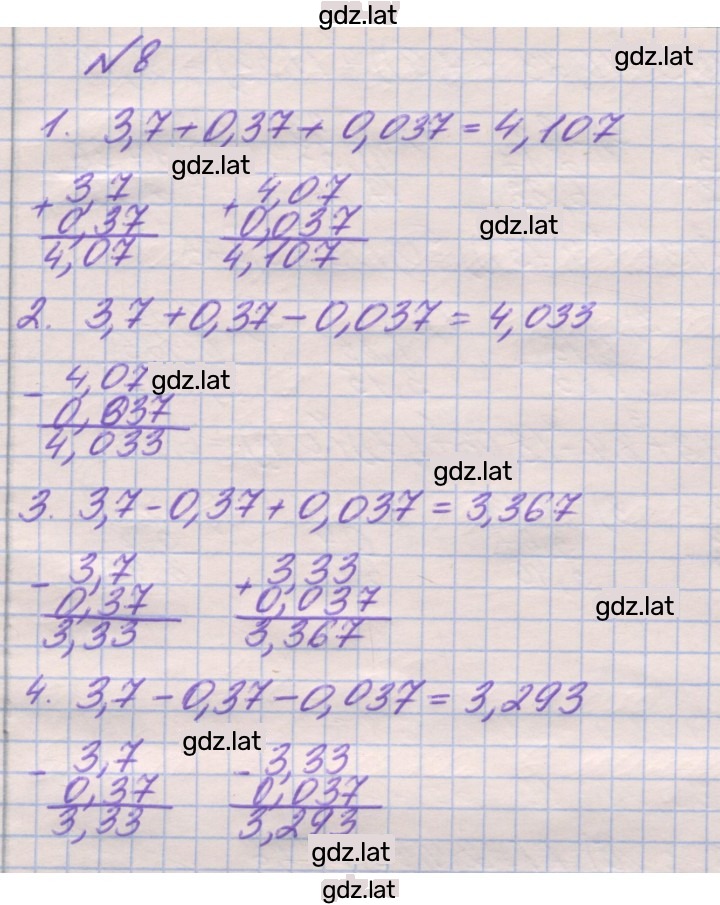 gdz.lat
№ 8
gdz.lat
1. 3,7 + 0,37 + 0,037 = 4,107
gdz.lat
+ 3,7
0,37
4,07
+ 4,07
0,037
4,107
gdz.lat
2. 3,7 + 0,37 - 0,037 = 4,033
- 4,07
0,037
4,033
gdz.lat
gdz.lat
3. 3,7 - 0,37 + 0,037 = 3,367
- 3,7
0,37
3,33
+ 3,33
0,037
3,367
gdz.lat
4. 3,7 - 0,37 - 0,037 = 3,293
gdz.lat
- 3,7
0,37
3,33
- 3,33
0,037
3,293
gdz.lat
gdz.lat